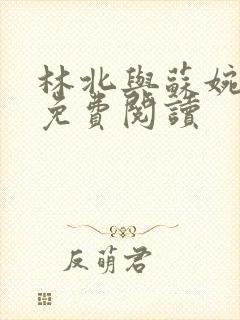 林北與蘇婉
免費閱讀
反萌君